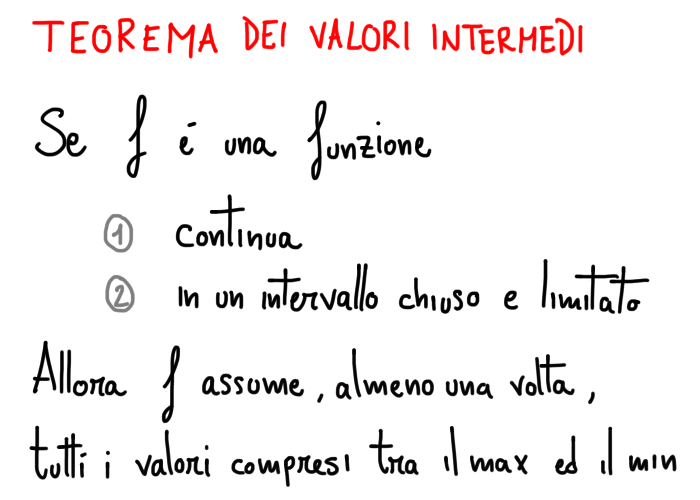 TEOREMA DEI VALORI INTERMEDI
Se f é una funzione
1 continua
2 in un intervallo chiuso e limitato
Allora f assume, almeno una volta,
tutti i valori compresi tra il max ed il min